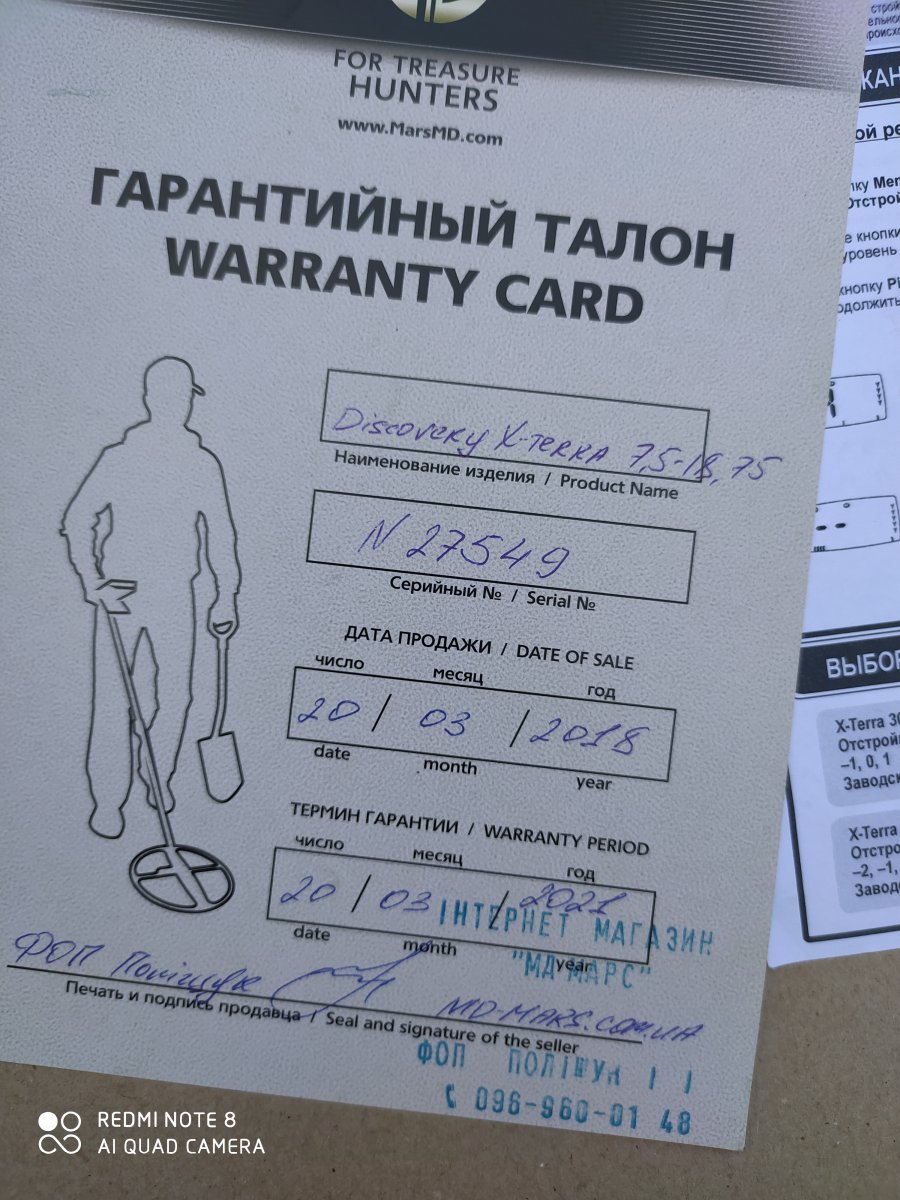 FOR TREASURE
HUNTERS
www.MarsMD.com
ГАРАНТИЙНЫЙ ТАЛОН
WARRANTY CARD
Discovery X-TERRA 7,5-18,75
Наименование изделия / Product Name
N 27549
Серийный № / Serial №
ДАТА ПРОДАЖИ / DATE OF SALE
число месяц год
20 / 03 / 2018
date month year
ТЕРМИН ГАРАНТИИ / WARRANTY PERIOD
число месяц год
20 / 03 / 2021
date month year
ІНТЕРНЕТ МАГАЗИН
"МД МАРС"
ФОП Поліщук MD-MARS.COM.UA
Печать и подпись продавца / Seal and signature of the seller
ФОП ПОЛІЩУК І І
096-960-01 48
ВЫБОР
X-Terra 30
Отстрой
–1, 0, 1
Заводс
X-Terra
Отстро
–2, –1,
Завод
REDMI NOTE 8
AI QUAD CAMERA